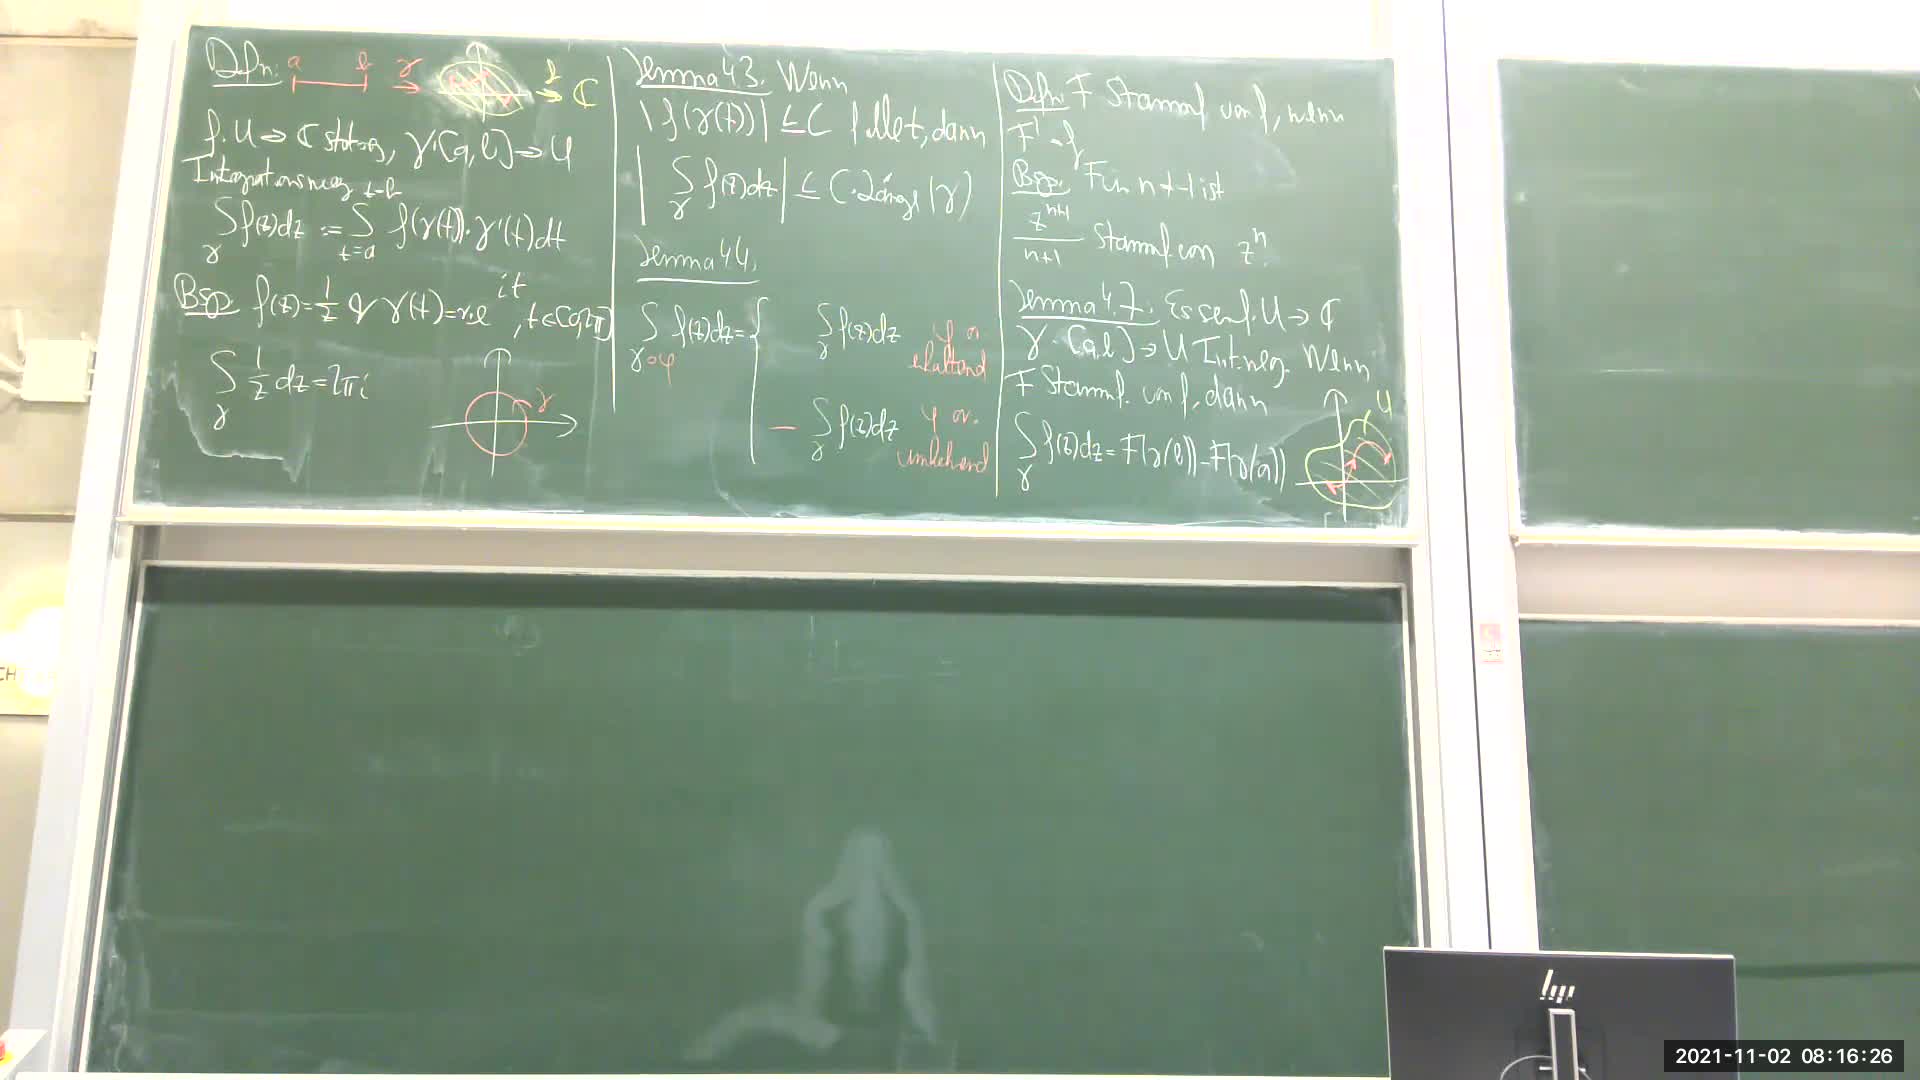 Defn. a b γ f ℂ
f: U → ℂ stetig, γ: [a,b] → U
Integrationsweg t=b
∫ f(z)dz := ∫ f(γ(t))·γ'(t)dt
γ t=a
Bsp. f(z)=1/z γ(t)=r·e^{it}, t∈[0,2π]
∫ 1/z dz = 2πi
γ
γ
Lemma 4.3. Wenn
|f(γ(t))| ≤ C f. alle t, dann
|∫ f(z)dz| ≤ C·Länge(γ)
γ
Lemma 4.4.
∫ f(z)dz = { ∫ f(z)dz φ or.
γ∘φ γ erhaltend
- ∫ f(z)dz φ or.
γ umkehrend
Defn. F Stammf. von f, wenn
F' = f
Bsp. Für n≠-1 ist
z^{n+1}/(n+1) Stammf. von z^n.
Lemma 4.7. Es sei f: U → ℂ
γ: [a,b] → U Int.weg. Wenn
F Stammf. von f, dann
∫ f(z)dz = F(γ(b)) - F(γ(a))
γ
U
CH
hp
2021-11-02 08:16:26